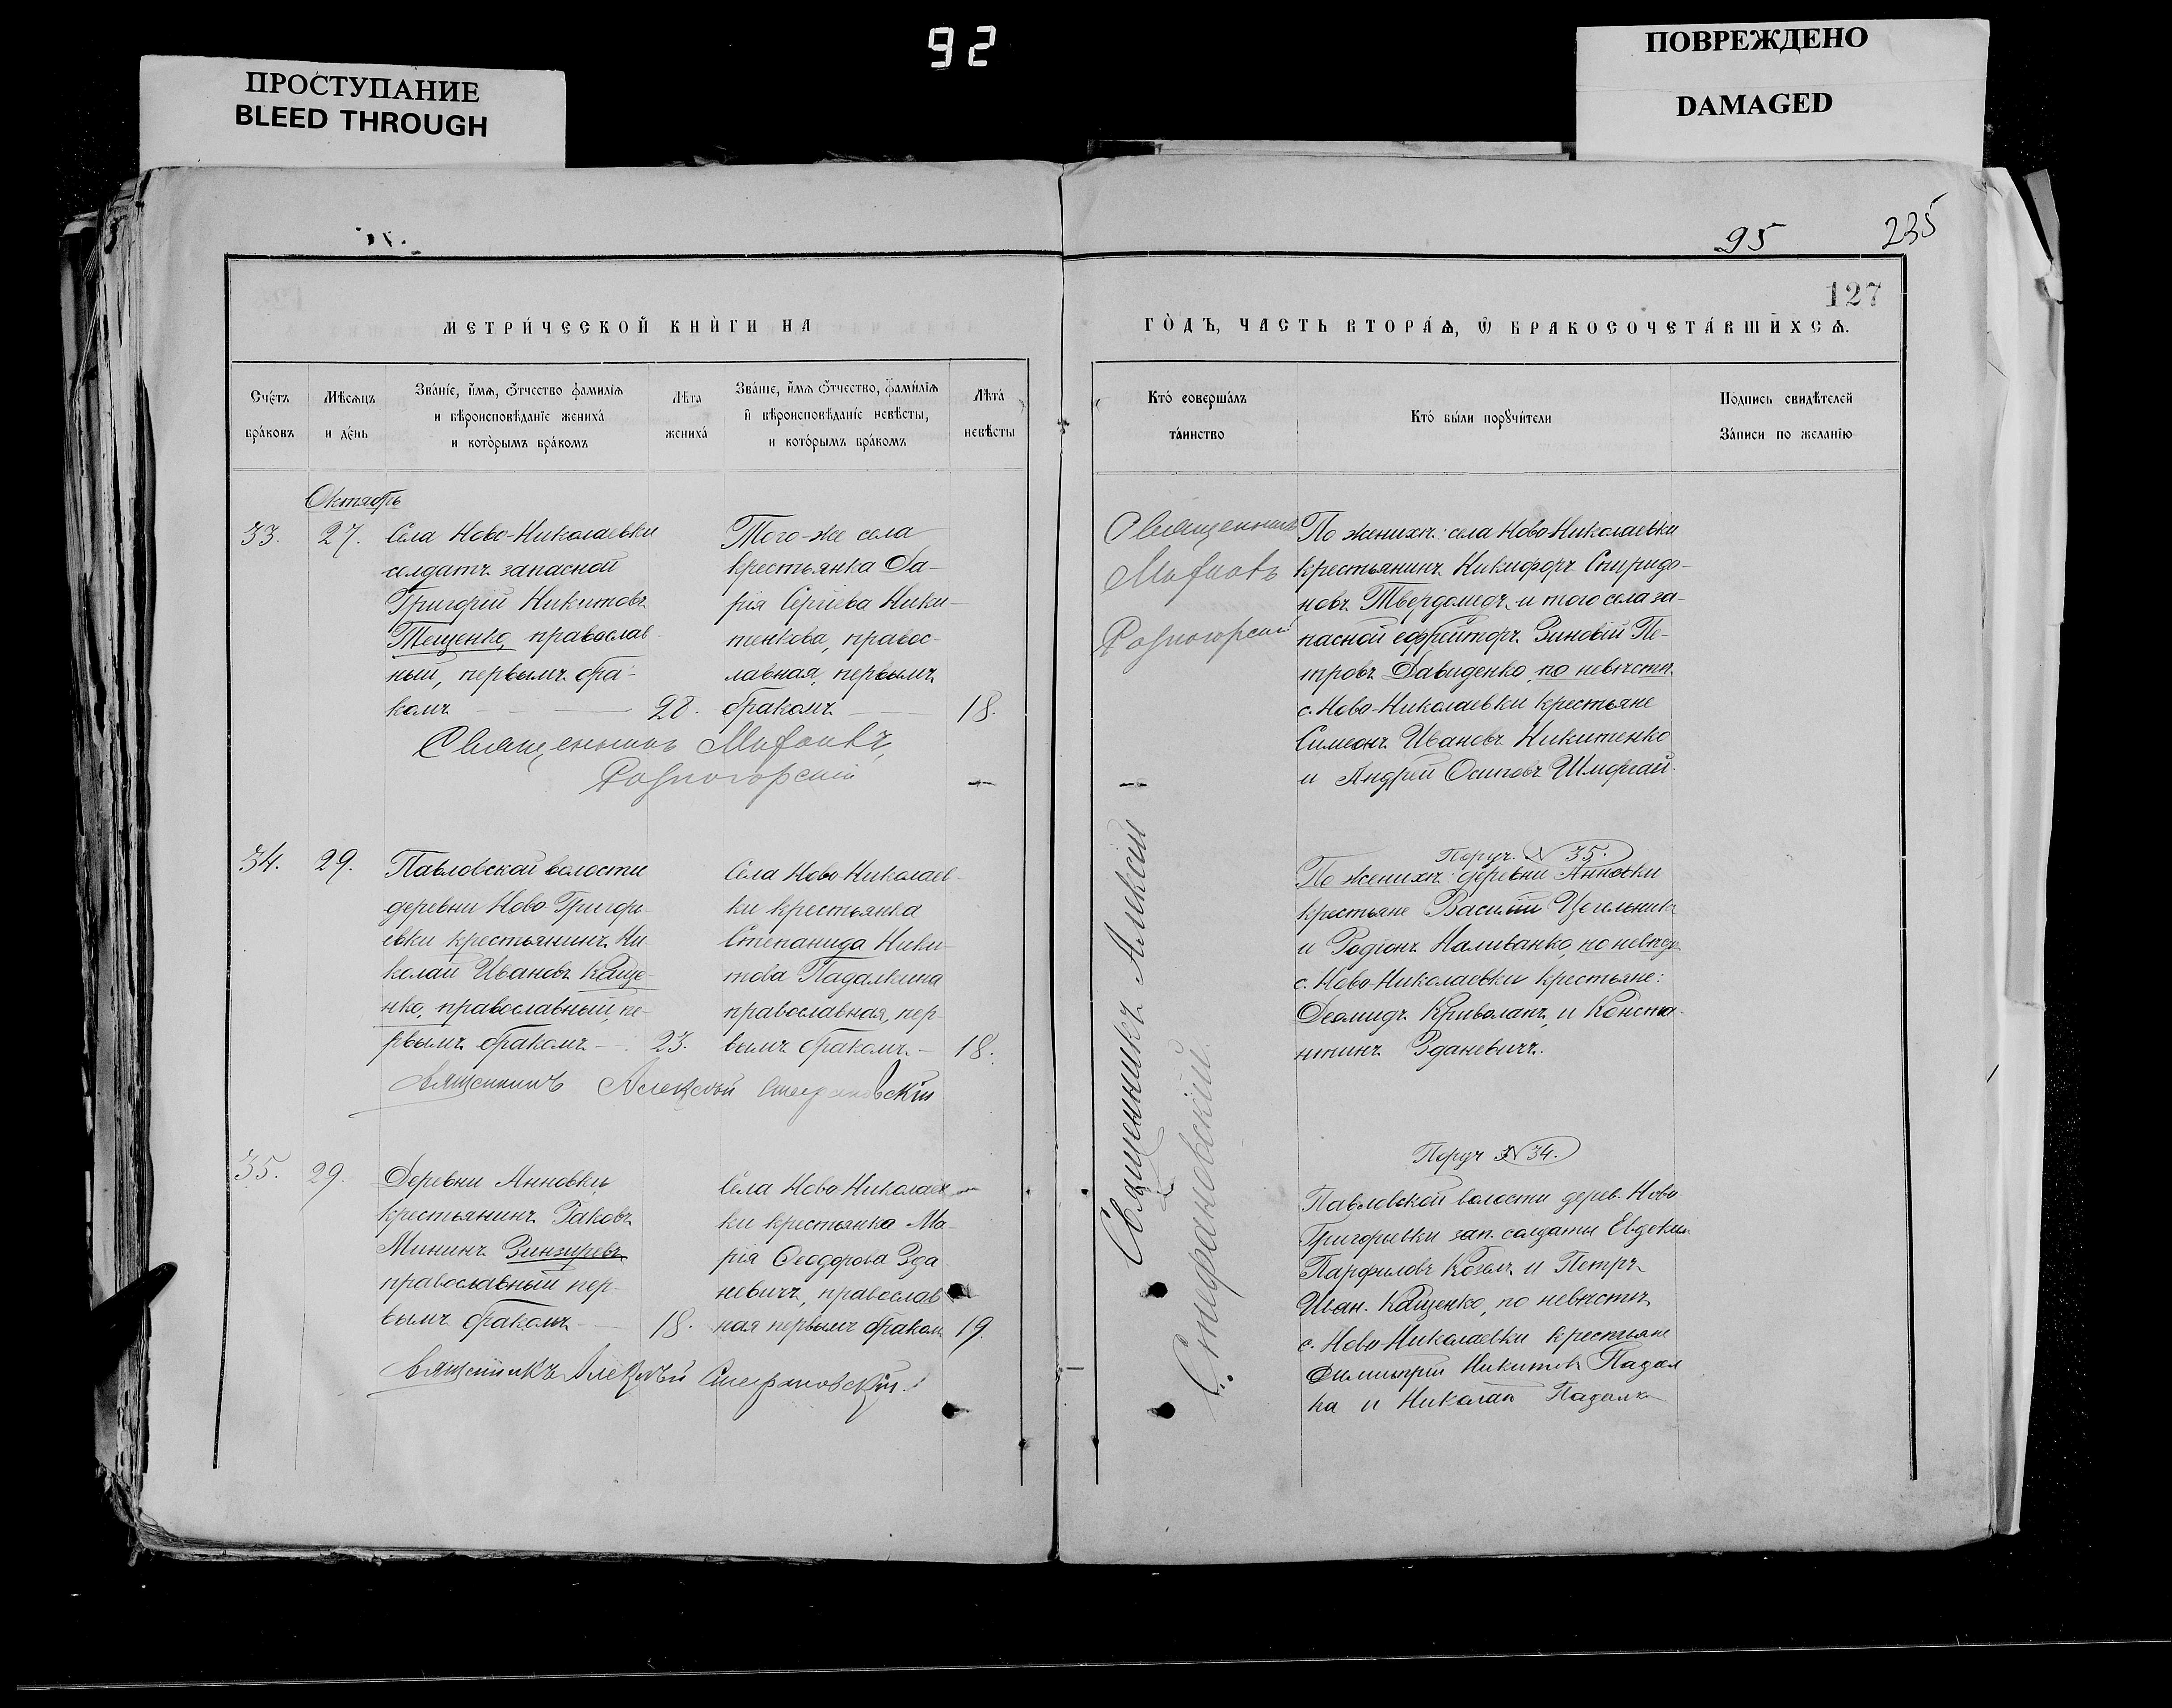 92
ПРОСТУПАНИЕ
BLEED THROUGH
ПОВРЕЖДЕНО
DAMAGED
95
235
127
МЕТРИ́ЧЕСКОЙ КНИ́ГИ НА
Сче́тъ
бра́ковъ
Мѣ́сѧцъ
и де́нь
Зва́нїе, и́мѧ, ѻ́тчество фамилїѧ
и вѣроисповѣ́данїе жениха́
и кото́рымъ бра́комъ
Лѣта
жениха́
Зва́нїе, и́мѧ ѻ́тчество, фами́лїѧ
и҆ вѣроисповѣ́данїе невѣ́сты,
и кото́рымъ бра́комъ
Лѣта́
невѣ́сты
Октябрь
33.
27.
Села Ново-Николаевки
солдатъ запасной
Григорій Никитовъ
Тещенко, православ-
ный, первымъ бра-
комъ
28.
Того-же села
крестьянка Да-
рія Сергіева Ники-
тенкова, правос-
лавная, первымъ
бракомъ
18.
Священникъ
34.
29.
Павловской волости
деревни Ново-Григорь-
евки крестьянинъ Ни-
колай Ивановъ Каще-
нко, православный, пе-
рвымъ бракомъ
23.
Села Ново-Николаев-
ки крестьянка
Степанида Ники-
това Падалкина
православная, пер-
вымъ бракомъ
18.
Священникъ Алексѣй Стефановскій
35.
29.
Деревни Анновки
крестьянинъ Іаковъ
Мининъ
православный пер-
вымъ бракомъ
18.
Села Ново-Николаев-
ки крестьянка Ма-
рія Ѳеодорова Зда-
невичъ, православ-
ная первымъ бракомъ
19.
Священникъ Алексѣй Стефановскій
ГО́ДЪ, ЧАСТЬ ВТОРА́Ѧ, Ѿ БРАКОСОЧЕТА́ВШИХСѦ.
Кто́ соверша́лъ
та́инство
Кто́ бы́ли порꙋчи́тели
Подпись свидѣ́телей
За́писи по жела́нїю
Священникъ
Священникъ Алексій
Стефановскій
По женихѣ: села Ново-Николаевки
крестьянинъ Никифоръ Спиридо-
новъ Твердомедъ и того села за-
пасной ефрейторъ Зиновій Пе-
тровъ Давиденко, по невѣстѣ
с. Ново-Николаевки крестьяне
Симеонъ Ивановъ Никитенко
и Андрей Осиповъ
Поруч. № 35.
По женихѣ: деревни Анновки
крестьяне Василій Цегельникъ
и Родіонъ Наливайко, по невѣс.
с. Ново-Николаевки крестьяне:
Деомидъ Криволапъ, и Конста-
нтинъ Зданевичъ.
Поруч № 34.
Павловской волости дерев. Ново
Григорьевки зап. солдаты Евдоким
Парфиловъ Козелъ и Петръ
Иван. Кащенко, по невѣстѣ
с. Ново-Николаевки крестьяне
Димитрій Никитовъ Падал
ка и Николай Падалка